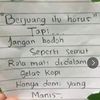 "Berjuang itu harus"
Tapi
Jangan bodoh
Seperti semut
Rela mati didalam
Gelas kopi
Hanya demi yang
Manis~